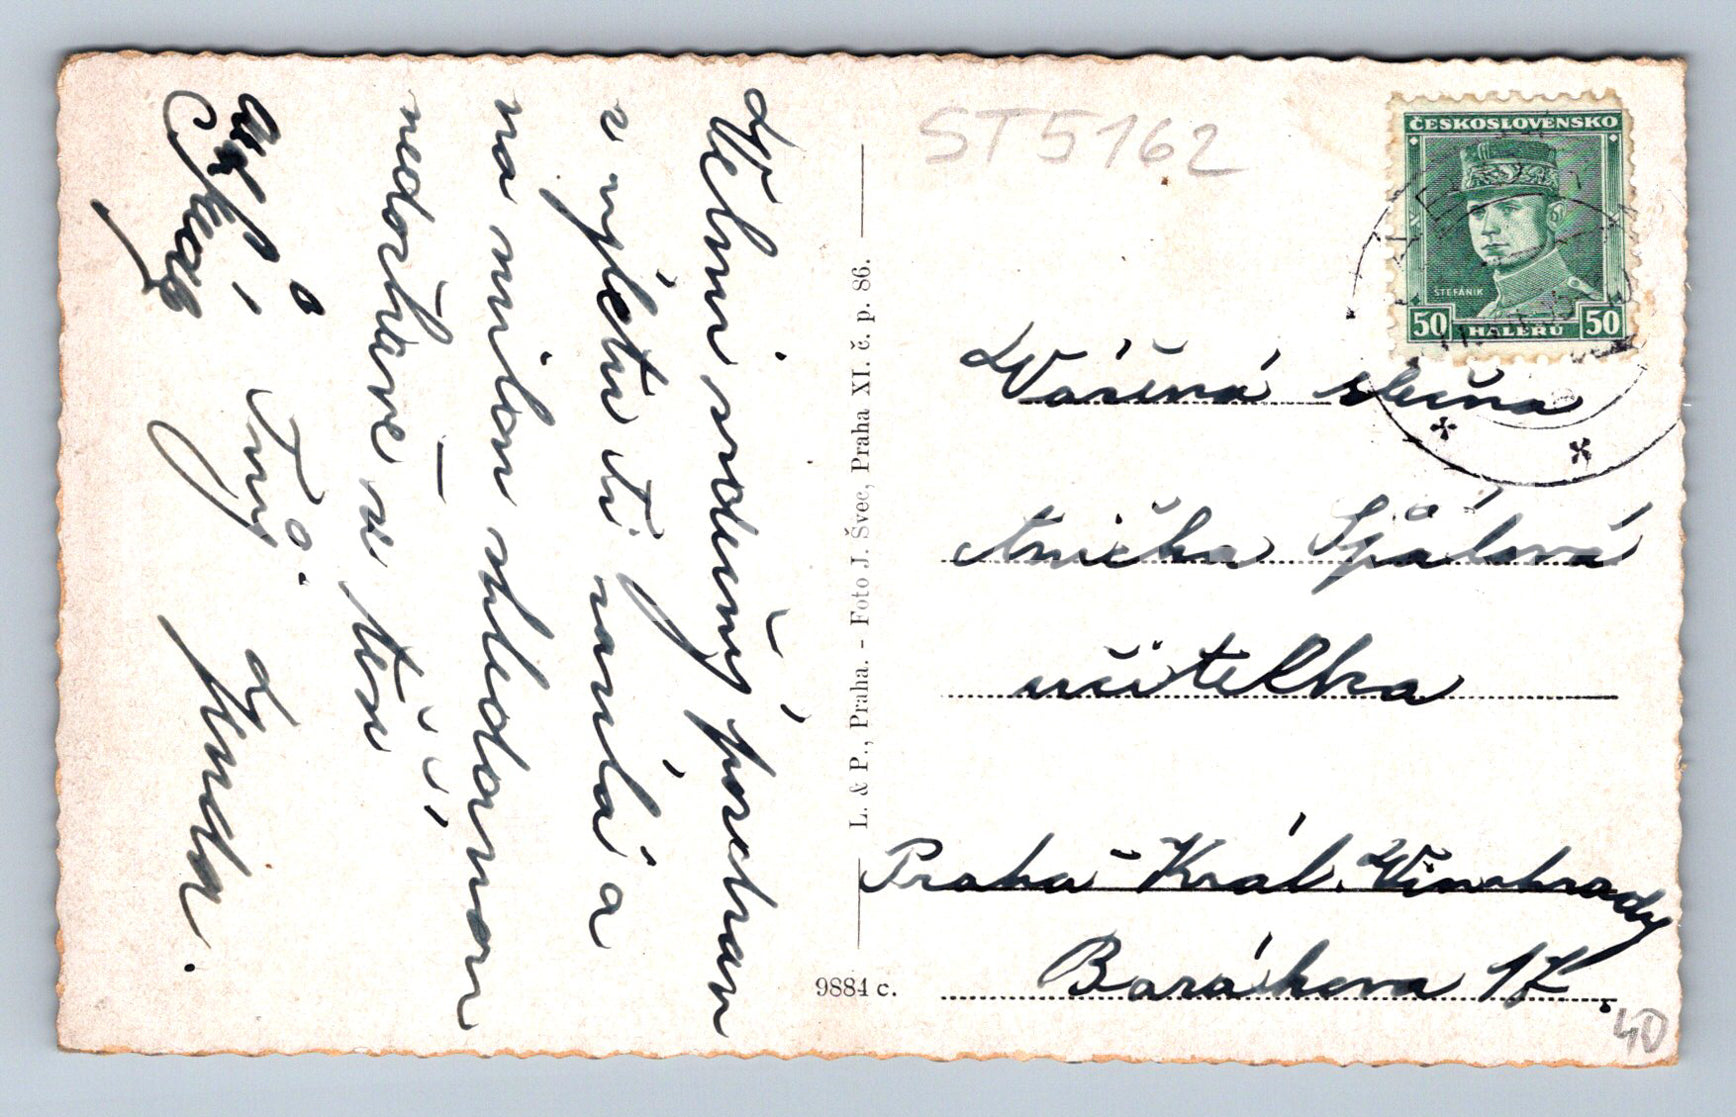 Velmi srdečný pozdrav
z výletu ti posílá a
na milou shledanou
nedočkavě se těší
Tvůj
ST5162
ČESKOSLOVENSKO
ŠTEFÁNIK
50 HALÉŘŮ 50
L. & P., Praha. - Foto J. Švec, Praha XI. č. p. 86.
9884 c.
Vážená slečna
Anička Špálová
učitelka
Praha - Král. Vinohrady
Barákova 17.
40